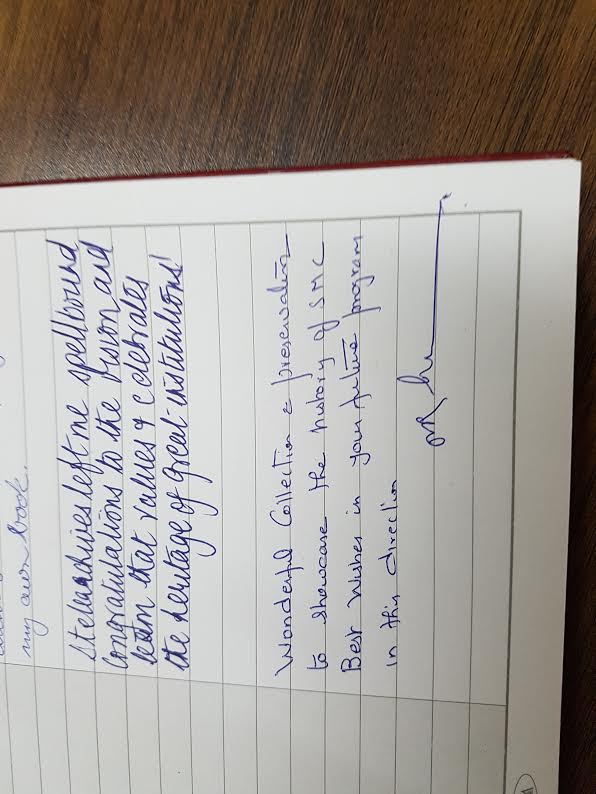 my own book.
Stellarchives left me spellbound
Congratulations to the vision and
team that values & celebrates
the heritage of great institutions!
Wonderful Collection & preservation
to showcase the history of SMC
Best Wishes in your future program
in this direction